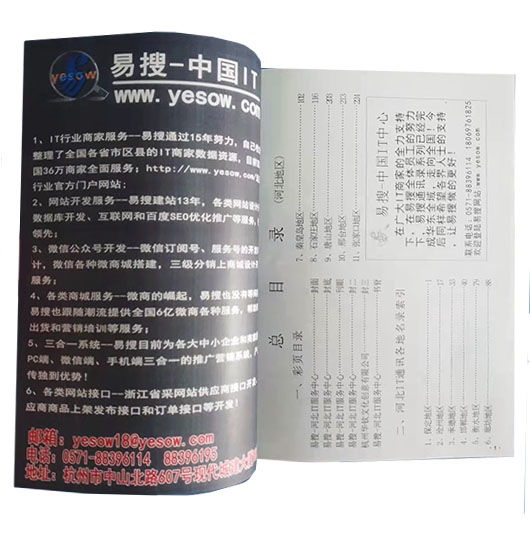 yesow
易搜-中国IT
www.yesow.com
1、IT行业商家服务--易搜通过15年努力，自己
整理了全国各省市区县的IT商家数据资源，目前
国36万商家全面服务；http://www.yesow.com/
行业官方门户网站；
2、网站开发服务--易搜建站13年，各类网站设计
数据库开发、互联网和百度SEO优化推广等服务，
领先；
3、微信公众号开发--微信订阅号、服务号的开
计，微信各种微商城搭建，三级分销上商城设计
服务；
4、各类商城服务--微商的崛起，易搜也没有
易搜也跟随潮流提供全国6亿微商各种服务，
出货和营销培训等服务；
5、三合一系统--易搜目前为各大中小企业和商
PC端、微信端、手机端三合一的推广营销系统，
传独到优势！
6、各类网站接口--浙江省采网站供应商接口开
应商商品上架发布接口和订单接口等开发！
邮箱：yesow18@yesow.com
电话：0571-88396114 88396195
地址：杭州市中山北路607号现代城
总目录
（河北地区）
一、彩页目录
易搜·河北IT服务中心 封面
易搜·河北IT服务中心 封底
易搜·河北IT服务中心 刊眼
易搜·河北IT服务中心 封二
杭州华钦文化创意有限公司 封三
易搜·河北IT服务中心 书脊
二、河北IT通讯各地名录索引
1、保定地区 1
2、沧州地区 17
3、承德地区 33
4、邯郸地区
5、衡水地区
6、廊坊地区
7、秦皇岛地区 102
8、石家庄地区 116
9、唐山地区 203
10、邢台地区
11、张家口地区 224
易搜-中国IT中心
在广大IT商家的全力支持
下，在易搜全体员工的努力
下，易搜通讯录系列已经完
成华东全城，走向全国！今
后同样希望各界人士的支持
，让易搜做的更好！
联系电话：0571-88396114 18069761825
欢迎登陆易搜网站：www.yesow.com